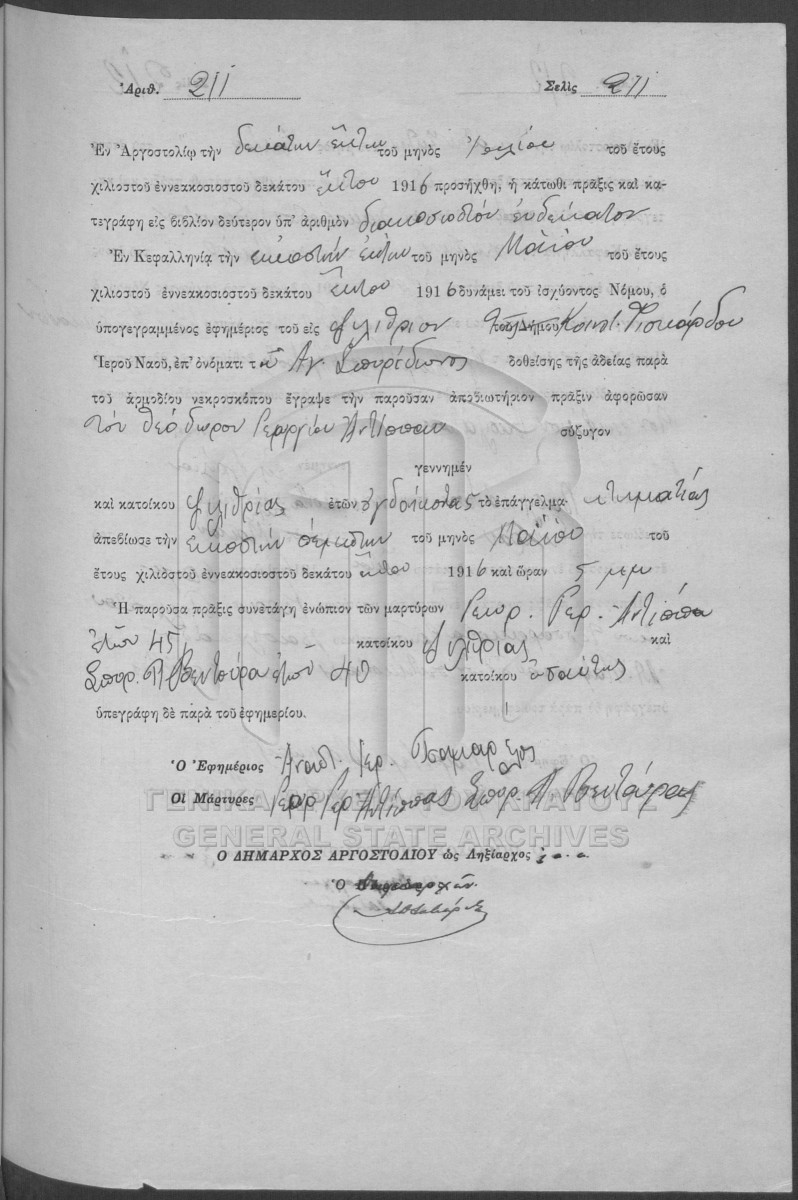 Ἀριθ. 211 Σελὶς 211
Ἐν Ἀργοστολίῳ τὴν δεκάτην ἕκτην τοῦ μηνὸς Ἰουλίου τοῦ ἔτους
χιλιοστοῦ ἐννεακοσιοστοῦ δεκάτου ἕκτου 1916 προσήχθη, ἡ κάτωθι πρᾶξις καὶ κα-
τεγράφη εἰς βιβλίον δεύτερον ὑπ' ἀριθμὸν διακοσιοστόν ἑνδέκατον
Ἐν Κεφαλληνίᾳ τὴν εἰκοστὴν ἕκτην τοῦ μηνὸς Μαΐου τοῦ ἔτους
χιλιοστοῦ ἐννεακοσιοστοῦ δεκάτου ἕκτου 1916 δυνάμει τοῦ ἰσχύοντος Νόμου, ὁ
ὑπογεγραμμένος ἐφημέριος τοῦ εἰς τοῦ Δήμου Κοινότ. Φισκάρδου
Ἱεροῦ Ναοῦ, ἐπ' ὀνόματι τοῦ Ἁγ. Σπυρίδωνος δοθείσης τῆς ἀδείας παρὰ
τοῦ ἁρμοδίου νεκροσκόπου ἔγραψε τὴν παροῦσαν ἀποβιωτήριον πρᾶξιν ἀφορῶσαν
τὸν Θεόδωρον Γεωργίου Ἀντίππαν σύζυγον
γεννημέν
καὶ κατοίκου ἐτῶν ὀγδοήκοντα 5 τὸ ἐπάγγελμα κτηματίας
ἀπεβίωσε τὴν εἰκοστὴν πέμπτην τοῦ μηνὸς Μαΐου τοῦ
ἔτους χιλιοστοῦ ἐννεακοσιοστοῦ δεκάτου ἕκτου 1916 καὶ ὥραν 5 μεμ
Ἡ παροῦσα πρᾶξις συνετάγη ἐνώπιον τῶν μαρτύρων Γεωρ. Γερ. Ἀντίππα
ἐτῶν 45 κατοίκου καὶ
Σπυρ. Π. Βεντούρα ἐτῶν 40 κατοίκου ὡσαύτως
ὑπεγράφη δὲ παρὰ τοῦ ἐφημερίου.
Ὁ Ἐφημέριος Ἀναστ. Γερ.
Οἱ Μάρτυρες Γεωρ Γερ Ἀντίππας Σπυρ. Π Βεντούρας
ΓΕΝΙΚΑ ΑΡΧΕΙΑ ΤΟΥ ΚΡΑΤΟΥΣ
GENERAL STATE ARCHIVES
Ὁ ΔΗΜΑΡΧΟΣ ΑΡΓΟΣΤΟΛΙΟΥ ὡς Ληξίαρχος
Ὁ